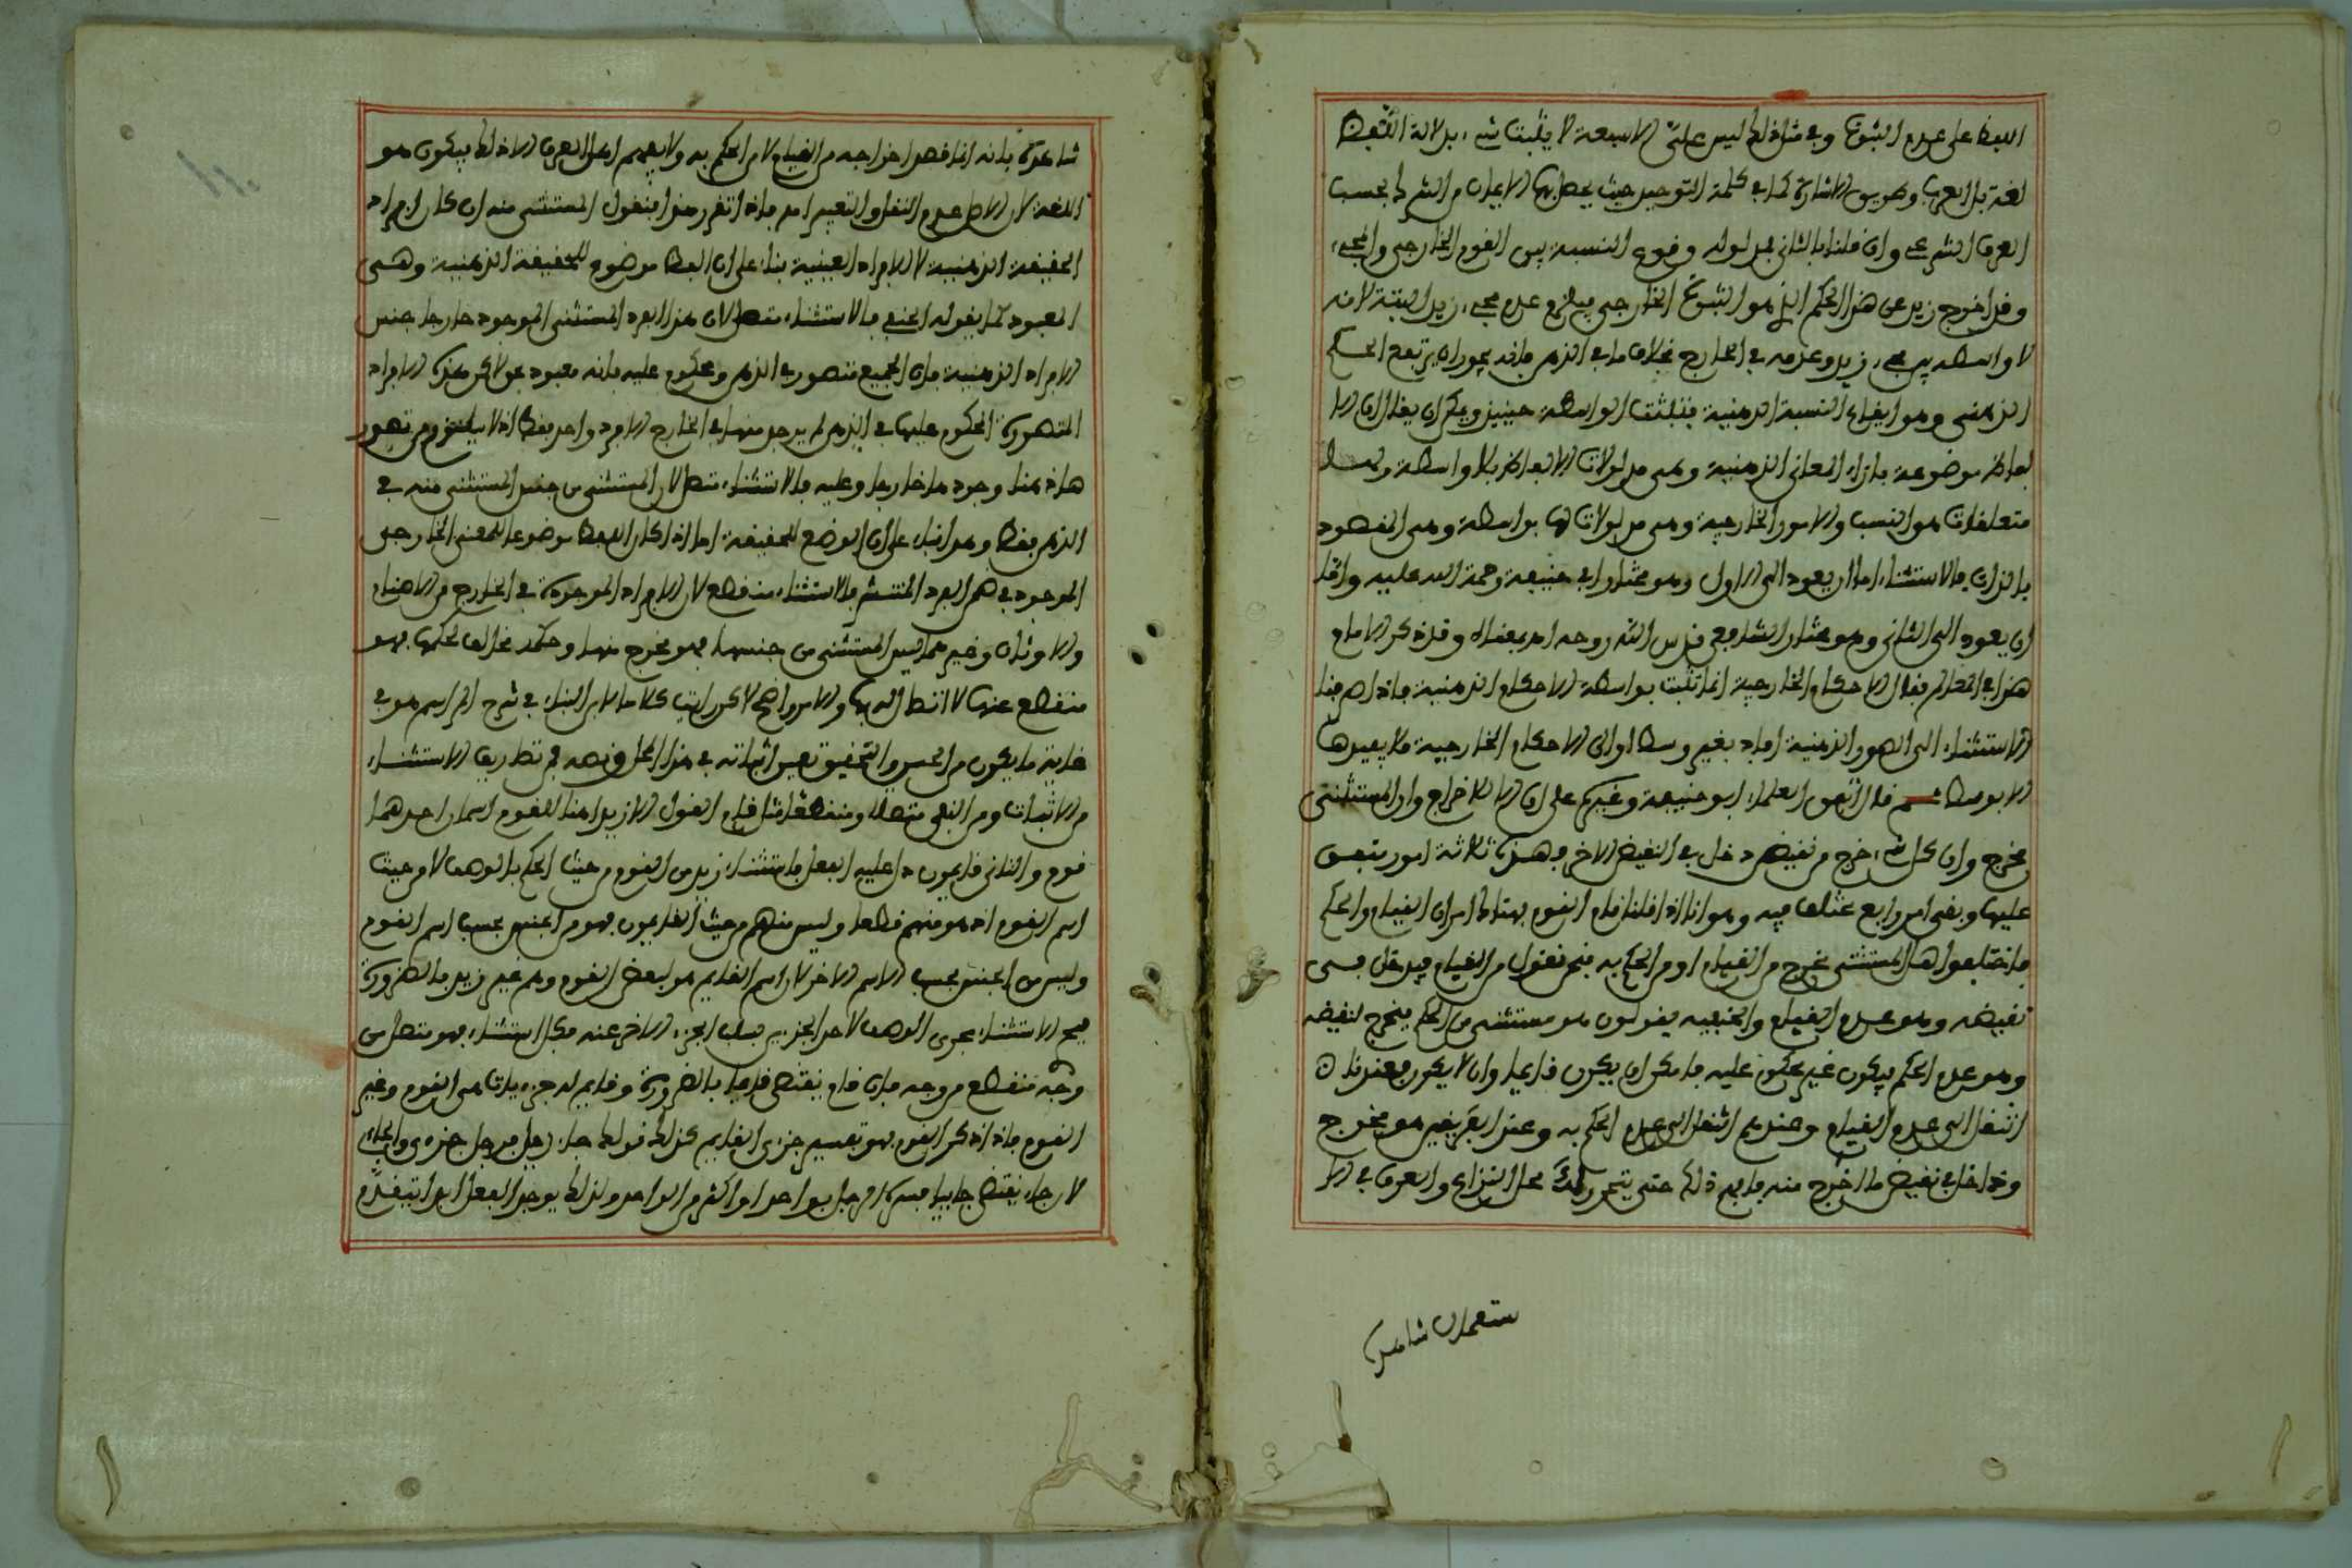 اللفظ على عدم الثبوت وفي مثل ذلك ليس علي الا سبعة لا يثبت شيء بدلالة اللفظ
لغة بل العرف وطريق الاشارة كما في كلمة التوحيد حيث يحصل بها الايمان من المشرك بحسب
العرف الشرعي وان قلنا بالثاني فمدلوله وقوع النسبة بين القوم الخارجي والمجيء
وقد اخرج زيد عن هذا الحكم الذي هو الثبوت الخارجي فيلزم عدم مجيء زيد البتة لانه
لا واسطة بين مجيء زيد وعدمه في الخارج بخلاف ما في الذهن فانه يجوز ان يرتفع الحكم
الذهني وهو ايقاع النسبة الذهنية فثبتت الواسطة حينئذ ويمكن ان يقال ان الا
لفاظ موضوعة بازاء المعاني الذهنية وهي مدلولات الالفاظ بلا واسطة ولها
متعلقات هو النسب والامور الخارجية وهي مدلولات لها بواسطة وهي المقصود
بالذات فالاستثناء اما ان يعود الى الاول وهو مختار ابي حنيفة رحمة الله عليه واما
ان يعود الى الثاني وهو مختار الشافعي قدس الله روحه وقد ذكر الامام
هذا في المعالم فقال الاحكام الخارجية انما تثبت بواسطة الاحكام الذهنية فاذا صرفنا
الاستثناء الى الصور الذهنية افاد بغير وسط او الى الاحكام الخارجية فلا يفيدها
الا بوسط قال اتفق العلماء ابو حنيفة وغيره على ان الا للاخراج وان المستثنى
مخرج وان كل شيء خرج من نقيض دخل في النقيض الاخر فهذه ثلاثة امور متفق
عليها وبقي امر رابع مختلف فيه وهو انا اذا قلنا قام القوم فهناك امران القيام والحكم
فاختلفوا هل المستثنى مخرج من القيام او من الحكم به فنحن نقول من القيام فيدخل في
نقيضه وهو عدم القيام والحنفية يقولون هو مستثنى من الحكم فيخرج لنقيضه
وهو عدم الحكم فيكون غير محكوم عليه فامكن ان يكون قائما وان لا يكون فعندنا
انتقل الى عدم القيام وعندهم انتقل الى عدم الحكم به وعند الفريقين هو مخرج
وداخل في نقيض ما اخرج منه فافهم ذلك حتى يتحرر لك محل النزاع والعرف في الا
ستعمال شاهد
شاهدة بانه انما قصد اخراجه من القيام لا من الحكم به ولا يفهم اهل العرف الا ذلك فيكون هو
اللغة لان الاصل عدم النقل والتغيير اهـ فاذا تقرر هذا فنقول المستثنى منه ان كان افراد
الحقيقة الذهنية لا الافراد العينية بناء على ان اللفظ موضوع للحقيقة الذهنية وهي
المعبود كما يقوله الحنفي فالاستثناء متصل لان هذا الفرد المستثنى الموجود خارجا جنس
الافراد الذهنية فان الجميع متصور في الذهن ومحكوم عليه بانه معبود بحق لاكن هذه الافراد
المتصورة المحكوم عليها في الذهن لم يوجد منها في الخارج الا فرد واحد فقط اذ لا يلزم من تصور
هاذهنا وجودها خارجا وعليه فالاستثناء متصل لان المستثنى من جنس المستثنى منه في
الذهن فقط وهو بناء على ان الوضع للحقيقة اما اذا كان اللفظ موضوعا للمعنى الخارجي
الموجود في هم الفرد المنتشر فالاستثناء منقطع لان الافراد الموجودة في الخارج من الاصنام
والاوثان وغيرهما ليس المستثنى من جنسها فهو مخرج منها وحكمه مخالف لحكمها فهو
منقطع عنها لا اتصال له بها والامر واضح لاكن رايت كلاما لابن البناء في شرح المراسم هو في
غاية ما يكون من الحسن والتحقيق تعين اثباته في هذا المحل ونصه في تطريف الاستثناء
من الاثبات ومن النفي متصلا ومنقطعا مثل قام القوم الا زيدا هنا للقوم اسمان احدهما
قوم والثاني قايمون دل عليه الفعل فاستثناء زيد من القوم من حيث الحكم بالوصف لا من حيث
اسم القوم اذ هو منهم قطعا وليس منهم من حيث القايمون فهو من الجنس بحسب اسم القوم
وليس من الجنس بحسب الاسم الاخر لان اسم القايم هو لبعض القوم وهم غير زيد بالضرورة
فصح الاستثناء يجري الوصف لاحد الجزءين بسلب الجزء الاخر عنه فكل استثناء فهو متصل من
وجه منقطع من وجه فان قام يقتضي قايما بالضرورة وقايم له جزءيات هي القوم وغير
القوم فاذا ذكر القوم فهو تفسير جزءي القايم كذلك قولك جاء رجل فرجل جزءي والجاء
لان جاء يقتضي جائيا فسره رجل بواحد او اكثر من الواحد ولذلك يوحد الفعل ابدا تقدم